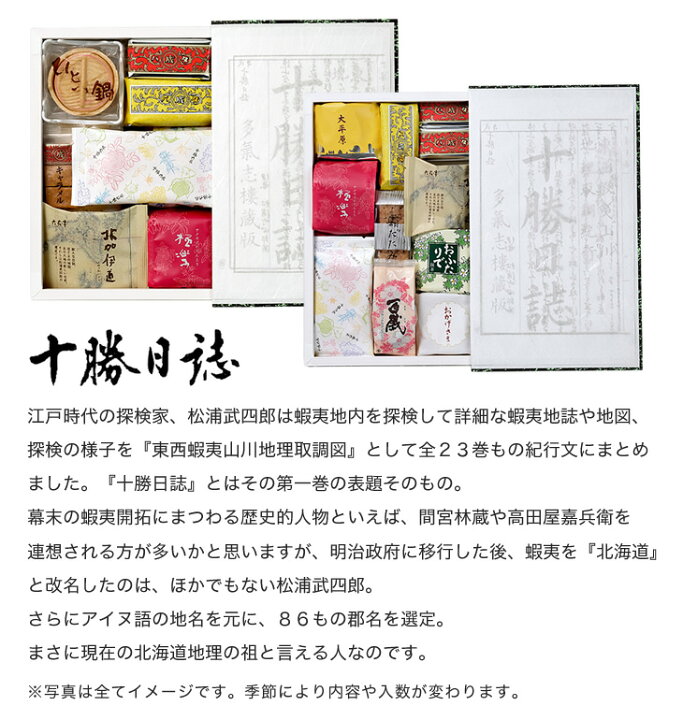 ひとつ鍋
十勝日誌
多氣志樓蔵版
キャラメル
六花亭
柏加伊通
極楽
大平原
十勝日誌
多氣志樓蔵版
おふたりで
百歳
おかげさま
十勝日誌
江戸時代の探検家、松浦武四郎は蝦夷地内を探検して詳細な蝦夷地誌や地図、
探検の様子を『東西蝦夷山川地理取調図』として全２３巻もの紀行文にまとめ
ました。『十勝日誌』とはその第一巻の表題そのもの。
幕末の蝦夷開拓にまつわる歴史的人物といえば、間宮林蔵や高田屋嘉兵衛を
連想される方が多いかと思いますが、明治政府に移行した後、蝦夷を『北海道』
と改名したのは、ほかでもない松浦武四郎。
さらにアイヌ語の地名を元に、８６もの郡名を選定。
まさに現在の北海道地理の祖と言える人なのです。
※写真は全てイメージです。季節により内容や入数が変わります。